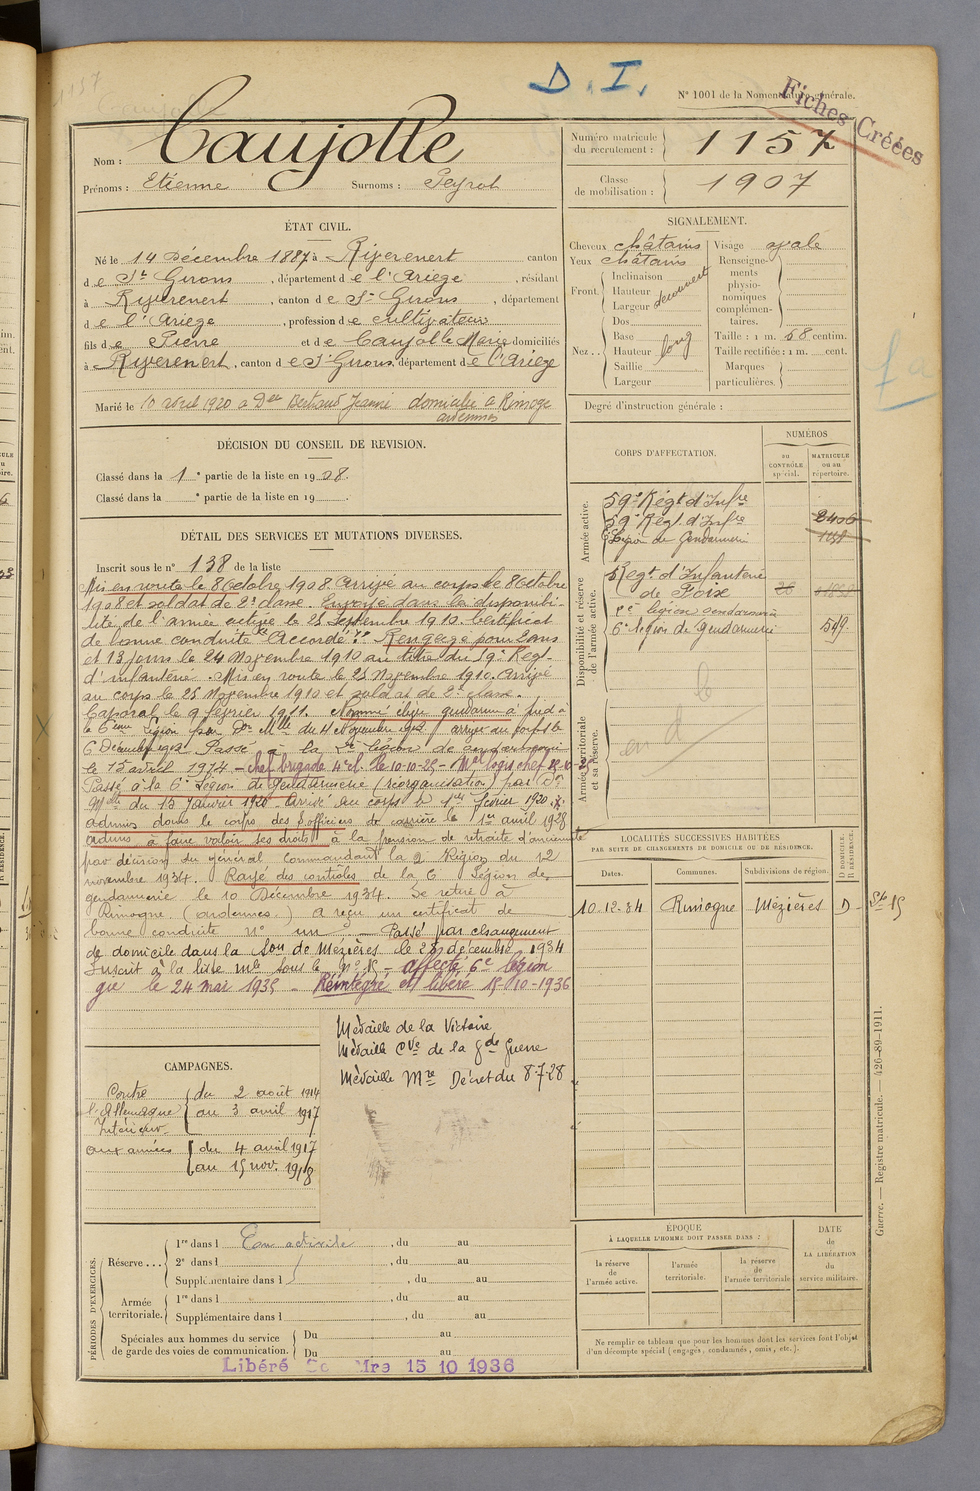 D. I.
N° 1001 de la Nomenclature générale.
Fiches Créées
Nom : Caujolle
Prénoms : Etienne Surnoms : Peyrot
Numéro matricule du recrutement : 1157
Classe de mobilisation : 1907
ÉTAT CIVIL.
Né le 14 Décembre 1887 à Riverenert canton
de St Girons, département de l'Ariège, résidant
à Riverenert, canton de St Girons, département
de l'Ariège, profession de cultivateur
fils de Pierre et de Caujolle Marie domiciliés
à Riverenert, canton de St Girons, département de l'Ariège
Marié le 10 avril 1920 à Dlle Bertrand Jeanne domiciliée à Rimogne
ardennes
SIGNALEMENT.
Cheveux châtains
Yeux châtains
Front. Inclinaison
Hauteur découvert
Largeur
Nez.. Dos
Base
Hauteur long
Saillie
Largeur
Visage ovale
Renseignements physionomiques complémentaires.
Taille : 1 m. 68 centim.
Taille rectifiée : 1 m. cent.
Marques particulières.
Degré d'instruction générale :
DÉCISION DU CONSEIL DE REVISION.
Classé dans la 1e partie de la liste en 1908.
Classé dans la e partie de la liste en 19 .
CORPS D'AFFECTATION.
NUMÉROS
au CONTRÔLE spécial.
MATRICULE ou au répertoire.
Armée active.
59e Régt d'Infie
59e Régt d'Infie 2406
6e Légion de Gendarmerie
Disponibilité et réserve de l'armée active.
Régt d'Infanterie
de Foix
légion gendarmerie
6e légion de Gendarmerie 549
Armée territoriale et sa réserve.
DÉTAIL DES SERVICES ET MUTATIONS DIVERSES.
Inscrit sous le n° 138 de la liste
Mis en route le 8 Octobre 1908. Arrivé au corps le 8 Octobre
1908 et soldat de 2e classe. Envoyé dans la disponibi-
lité de l'armée active le 25 Septembre 1910. Certificat
de bonne conduite "Accordé". Rengagé pour 2 ans
et 13 jours le 24 Novembre 1910 au titre du 59e Régt
d'infanterie. Mis en route le 25 Novembre 1910. Arrivé
au corps le 25 Novembre 1910 et soldat de 2e classe.
Caporal le 9 février 1911. Nommé élève gendarme à pied à
la 6ème légion par Don Mlle du 4 Novembre 1912 arrivé au corps le
6 Décembre 1912. Passé à la légion de gendarmerie
le 15 avril 1914 - chef brigade 4e cl. le 10-10-25 - Mal logis chef
Passé à la 6e Légion de gendarmerie (réorganisation) par Don
Mlle du 13 Janvier 1920. Arrivé au corps le 1er février 1920.
admis dans le corps des s/officiers de carrière le 1er avril 1928
admis à faire valoir ses droits à la pension de retraite d'ancienneté
par décision du général Commandant la 2e Région du 12
novembre 1934. Rayé des contrôles de la 6e Légion de
gendarmerie le 10 Décembre 1934. Se retire à
Rimogne (ardennes) a reçu un certificat de
bonne conduite n° un - Passé par changement
de domicile dans la Son de Mézières le 25 décembre 1934
Inscrit à la liste mle sous le n° 15 - affecté 6e légion
gie le 24 mai 1935 - Réintégré et libéré 15-10-1936
Médaille de la Victoire
Médaille Cve de la Gde Guerre
Médaille Mre Décret du 8-7-28
LOCALITÉS SUCCESSIVES HABITÉES
PAR SUITE DE CHANGEMENTS DE DOMICILE OU DE RÉSIDENCE.
Dates. Communes. Subdivisions de région. D DOMICILE. R RÉSIDENCE.
10.12.34 Rimogne Mézières D
CAMPAGNES.
Contre l'Allemagne
Intérieur du 2 août 1914
au 3 avril 1917
aux armées du 4 avril 1917
au 15 nov. 1918
PÉRIODES D'EXERCICES.
Réserve ... 1re dans l En activité, du au
2e dans l , du au
Supplémentaire dans l , du au
Armée territoriale. 1re dans l , du au
Supplémentaire dans l , du au
Spéciales aux hommes du service de garde des voies de communication. Du au
Du au
Libéré Mre 15 10 1936
ÉPOQUE
À LAQUELLE L'HOMME DOIT PASSER DANS :
la réserve de l'armée active.
l'armée territoriale.
la réserve de l'armée territoriale
DATE de LA LIBÉRATION du service militaire.
Ne remplir ce tableau que pour les hommes dont les services font l'objet
d'un décompte spécial (engagés, condamnés, omis, etc.).
Guerre. — Registre matricule. — 426-89-1911.